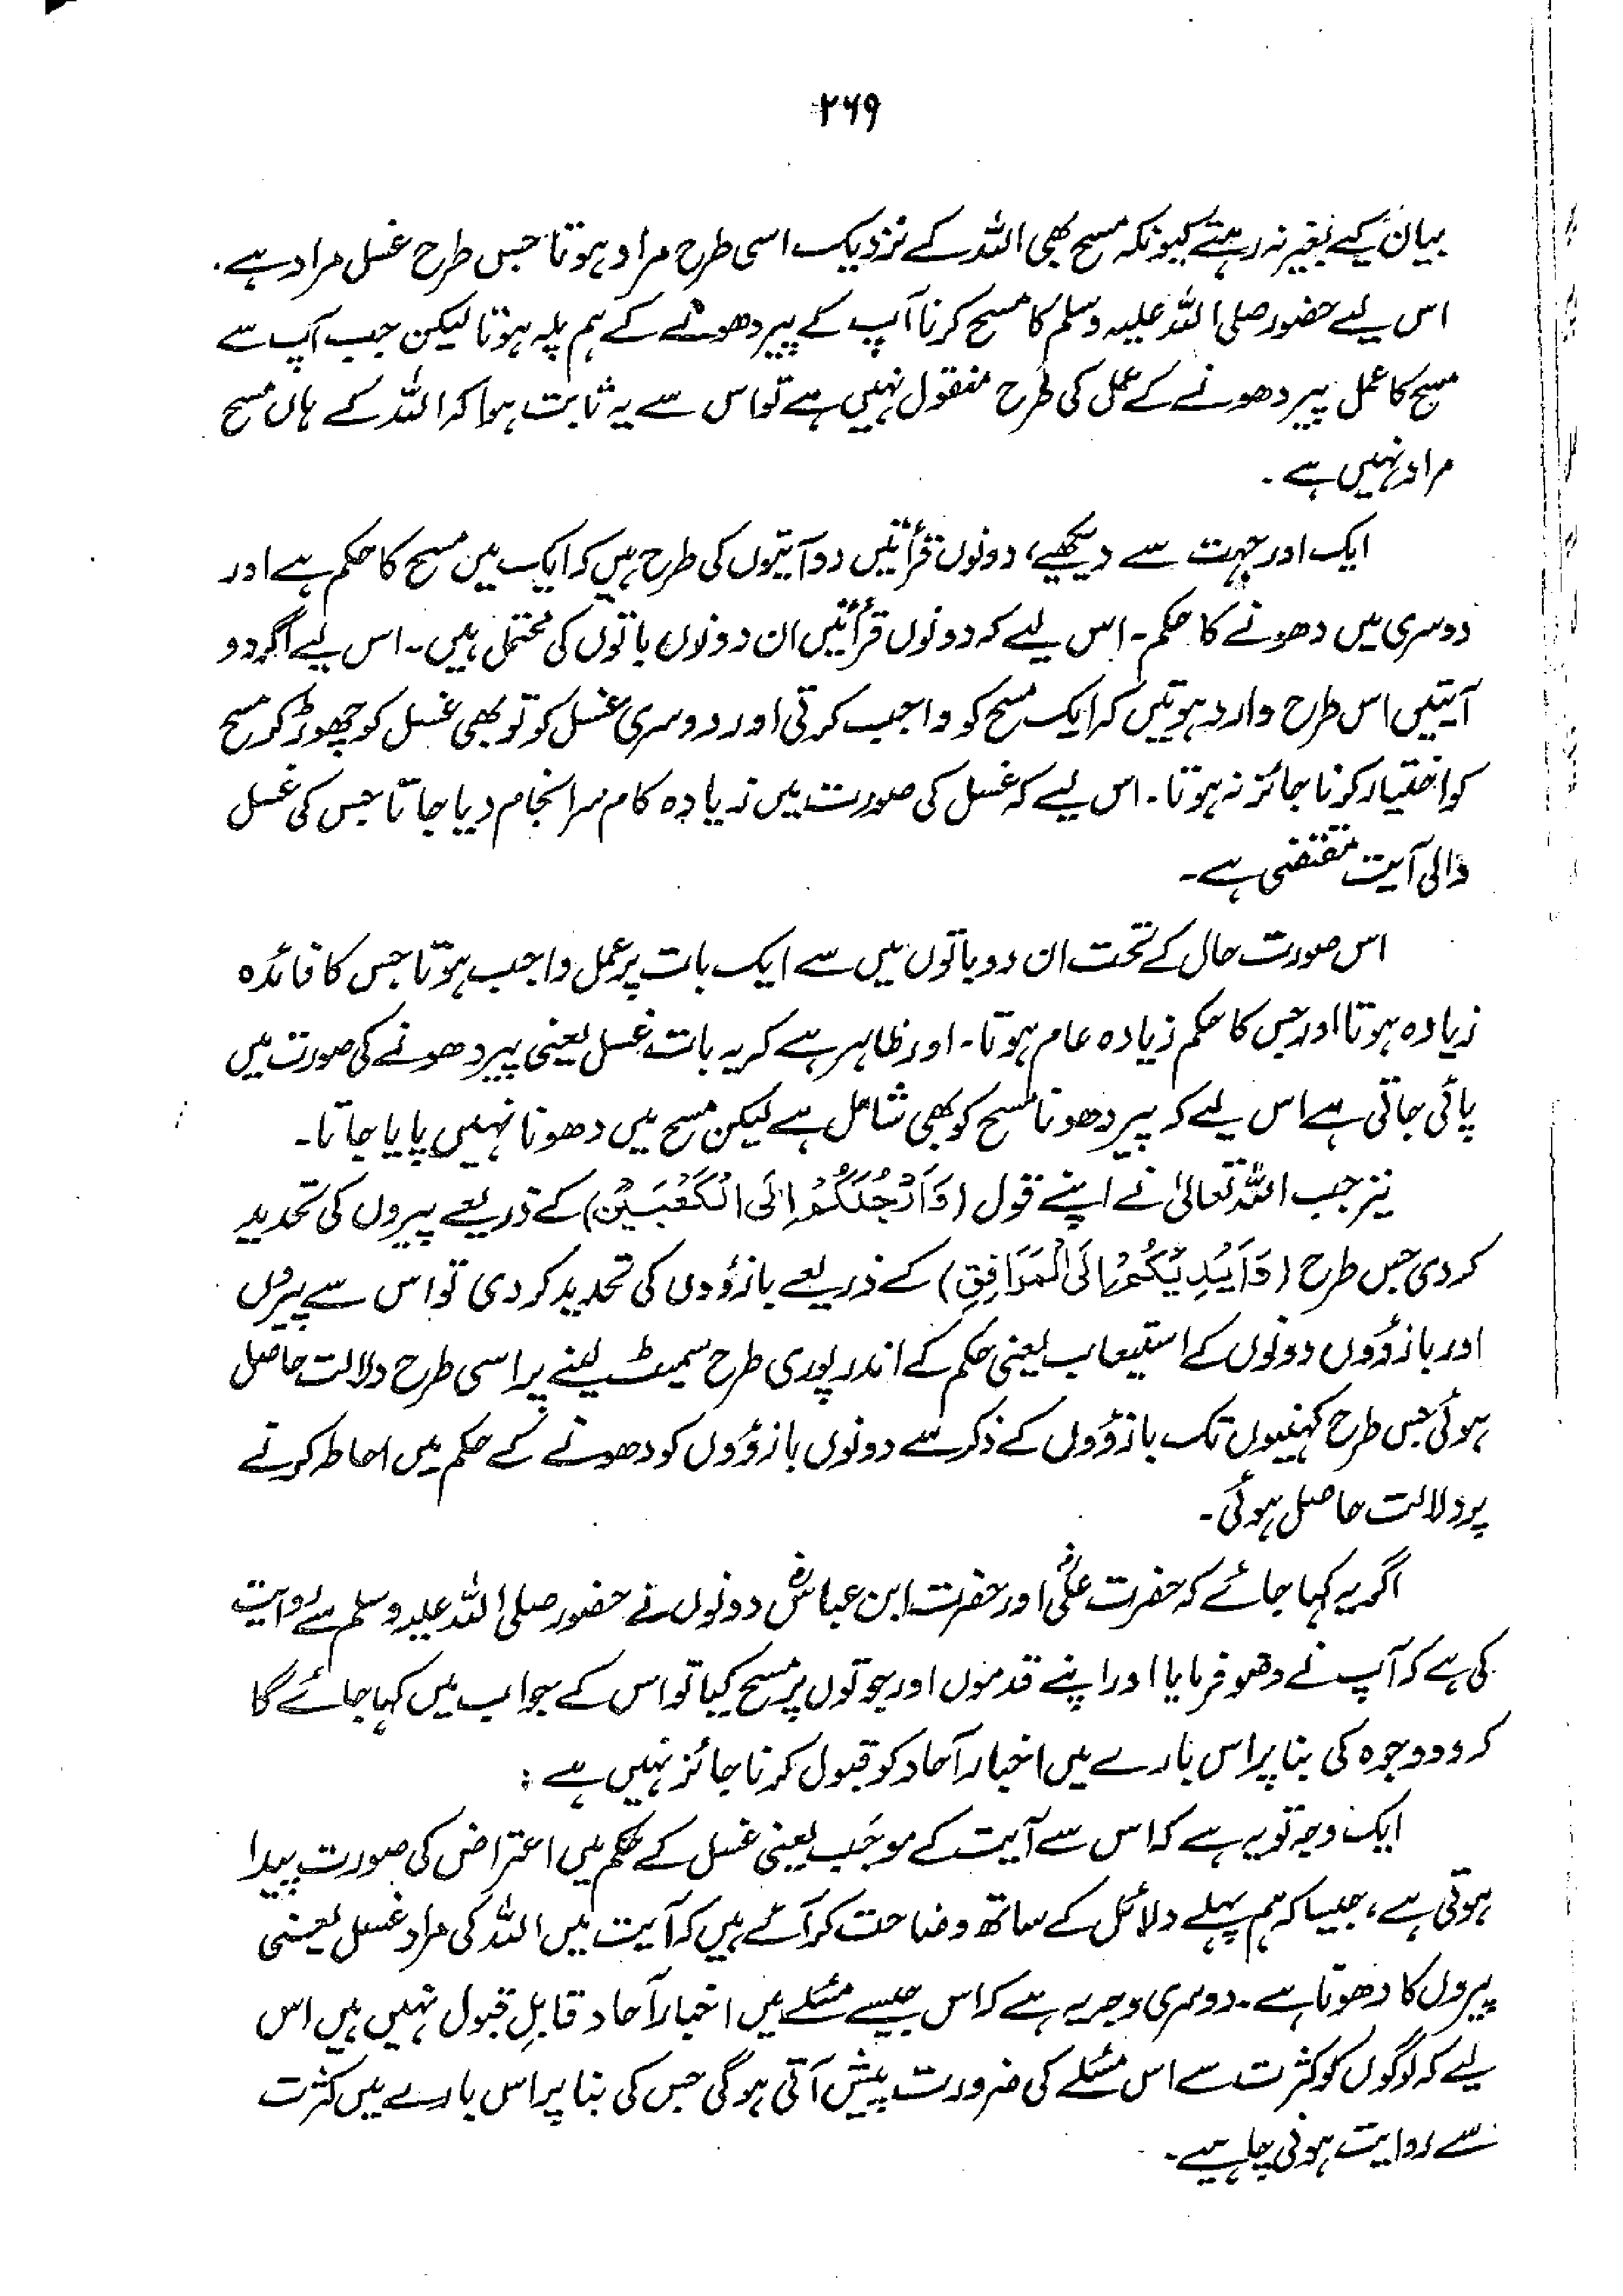 ۲۶۹
بیان کیے بغیر نہ رہتے کیونکہ مسح بھی اللہ کے نزدیک اسی طرح مراد ہوتا جس طرح غسل مراد ہے۔
اس لیے حضور صلی اللہ علیہ وسلم کا مسح کرنا آپ کے پیر دھونے کے ہم پلہ ہوتا لیکن جب آپ سے
مسح کا عمل پیر دھونے کے عمل کی طرح منقول نہیں ہے تو اس سے یہ ثابت ہوا کہ اللہ کے ہاں مسح
مراد نہیں ہے۔
ایک اور جہت سے دیکھیے، دونوں قرأتیں دو آیتوں کی طرح ہیں کہ ایک میں مسح کا حکم ہے اور
دوسری میں دھونے کا حکم۔ اس لیے کہ دونوں قرأتیں ان دونوں باتوں کی محتمل ہیں۔ اس لیے اگر دو
آیتیں اس طرح وارد ہوتیں کہ ایک مسح کو واجب کرتی اور دوسری غسل کو تو بھی غسل کو چھوڑ کر مسح
کو اختیار کرنا جائز نہ ہوتا۔ اس لیے کہ غسل کی صورت میں زیادہ کام سرانجام دیا جاتا جس کی غسل
والی آیت مقتضی ہے۔
اس صورت حال کے تحت ان دو باتوں میں سے ایک بات پر عمل واجب ہوتا جس کا فائدہ
زیادہ ہوتا اور جس کا حکم زیادہ عام ہوتا۔ اور ظاہر ہے کہ یہ بات غسل یعنی پیر دھونے کی صورت میں
پائی جاتی ہے اس لیے کہ پیر دھونا مسح کو بھی شامل ہے لیکن مسح میں دھونا نہیں پایا جاتا۔
نیز جب اللہ تعالیٰ نے اپنے قول (وَاَرْجُلَكُمْ اِلَى الْكَعْبَيْنِ) کے ذریعے پیروں کی تحدید
کر دی جس طرح (وَاَيْدِيَكُمْ اِلَى الْمَرَافِقِ) کے ذریعے بازوؤں کی تحدید کر دی تو اس سے پیروں
اور بازوؤں دونوں کے استیعاب یعنی حکم کے اندر پوری طرح سمیٹ لینے پر اسی طرح دلالت حاصل
ہوئی جس طرح کہنیوں تک بازوؤں کے ذکر سے دونوں بازوؤں کو دھونے کے حکم میں احاطہ کرنے
پر دلالت حاصل ہوئی۔
اگر یہ کہا جائے کہ حضرت علیؓ اور حضرت ابن عباسؓ دونوں نے حضور صلی اللہ علیہ وسلم سے روایت
کی ہے کہ آپ نے وضو فرمایا اور اپنے قدموں اور جوتوں پر مسح کیا تو اس کے جواب میں کہا جائے گا
کہ دو وجوہ کی بنا پر اس بارے میں اخبار آحاد کو قبول کرنا جائز نہیں ہے :
ایک وجہ تو یہ ہے کہ اس سے آیت کے موجَب یعنی غسل کے حکم میں اعتراض کی صورت پیدا
ہوتی ہے، جیسا کہ ہم پہلے دلائل کے ساتھ وضاحت کر آئے ہیں کہ آیت میں اللہ کی مراد غسل یعنی
پیروں کا دھونا ہے۔ دوسری وجہ یہ ہے کہ اس جیسے مسئلے میں اخبار آحاد قابلِ قبول نہیں ہیں اس
لیے کہ لوگوں کو کثرت سے اس مسئلے کی ضرورت پیش آتی ہو گی جس کی بنا پر اس بارے میں کثرت
سے روایت ہونی چاہیے۔